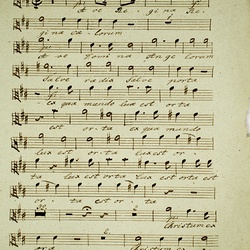 Ave Regina Re-
gina cælorum
Ave Domina Angelorum
Salve radix salve porta
ex qua mundo lux est orta
est orta ex qua mundo
lux est orta lux est or-
ta lux est orta lux est orta est
orta est orta
Christum ex
ora Christum ex